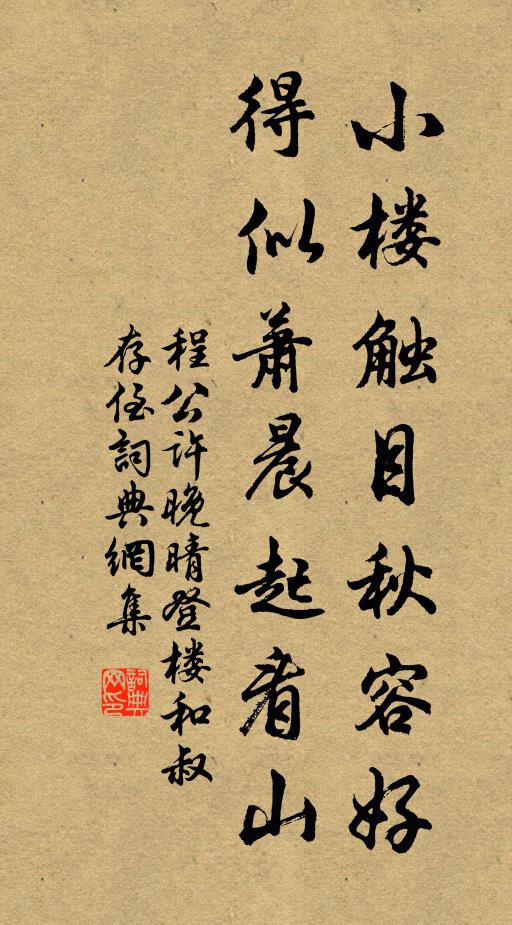 小楼触目秋容好
得似萧晨起看山
程公许晚晴登楼和叔
存侄詞典網集
詞典
网印